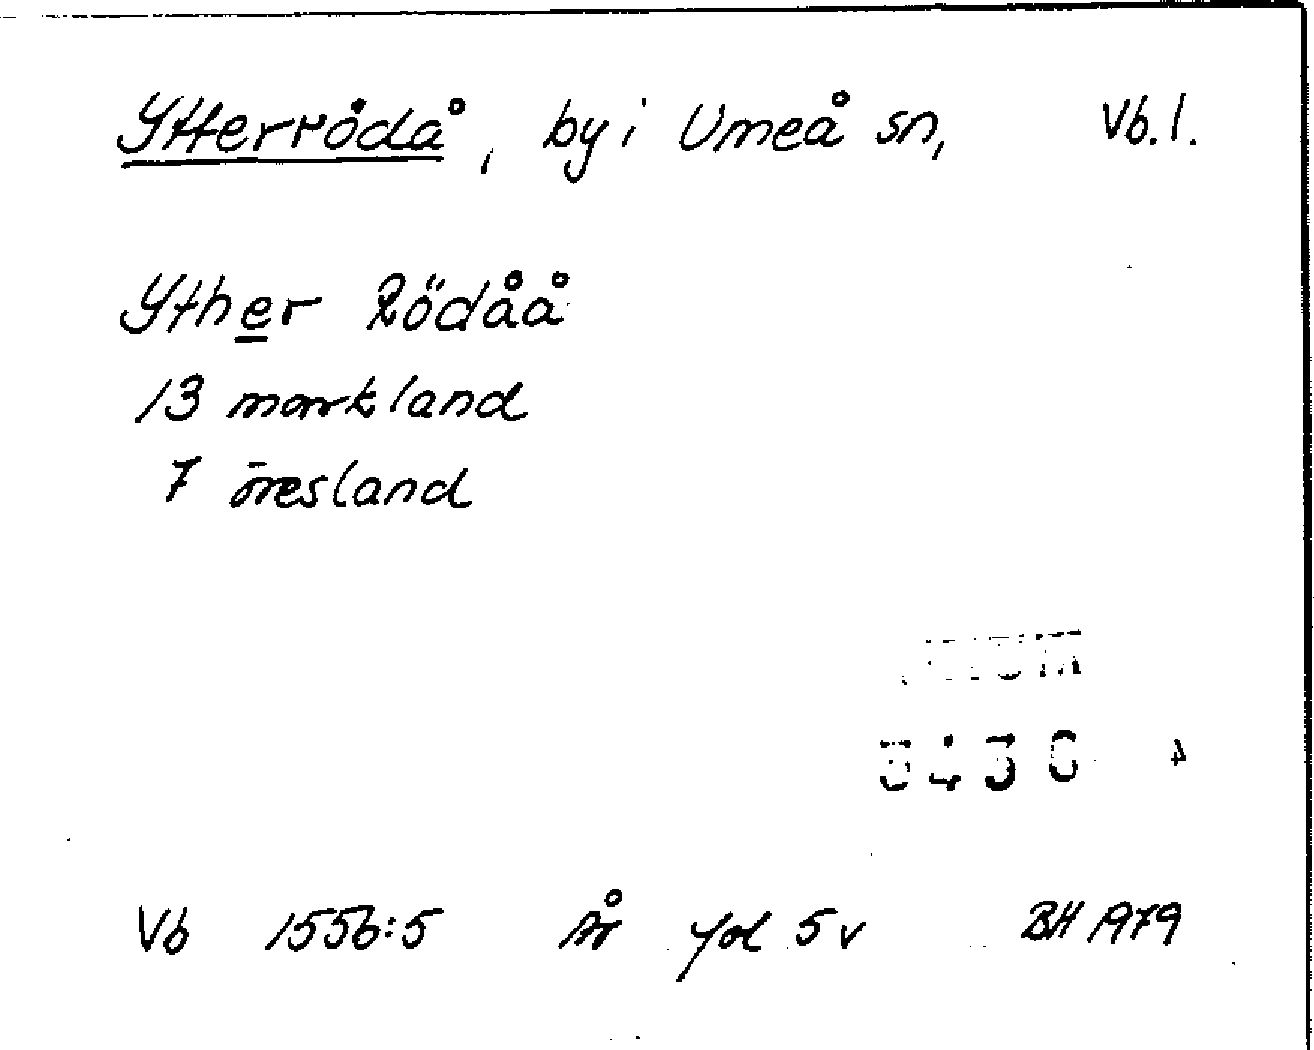 Ytterrödå, by i Umeå sn, Vb. l.
Yther Rödåå
13 markland
7 öresland
Vb 1556:5 År fol 5 v BH 1979